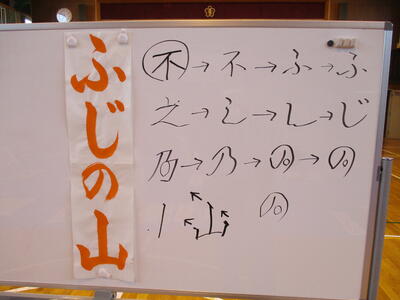 ふじの山
不→不→ふ→ふ
之→し→し→じ
乃→乃→の→の
山
の